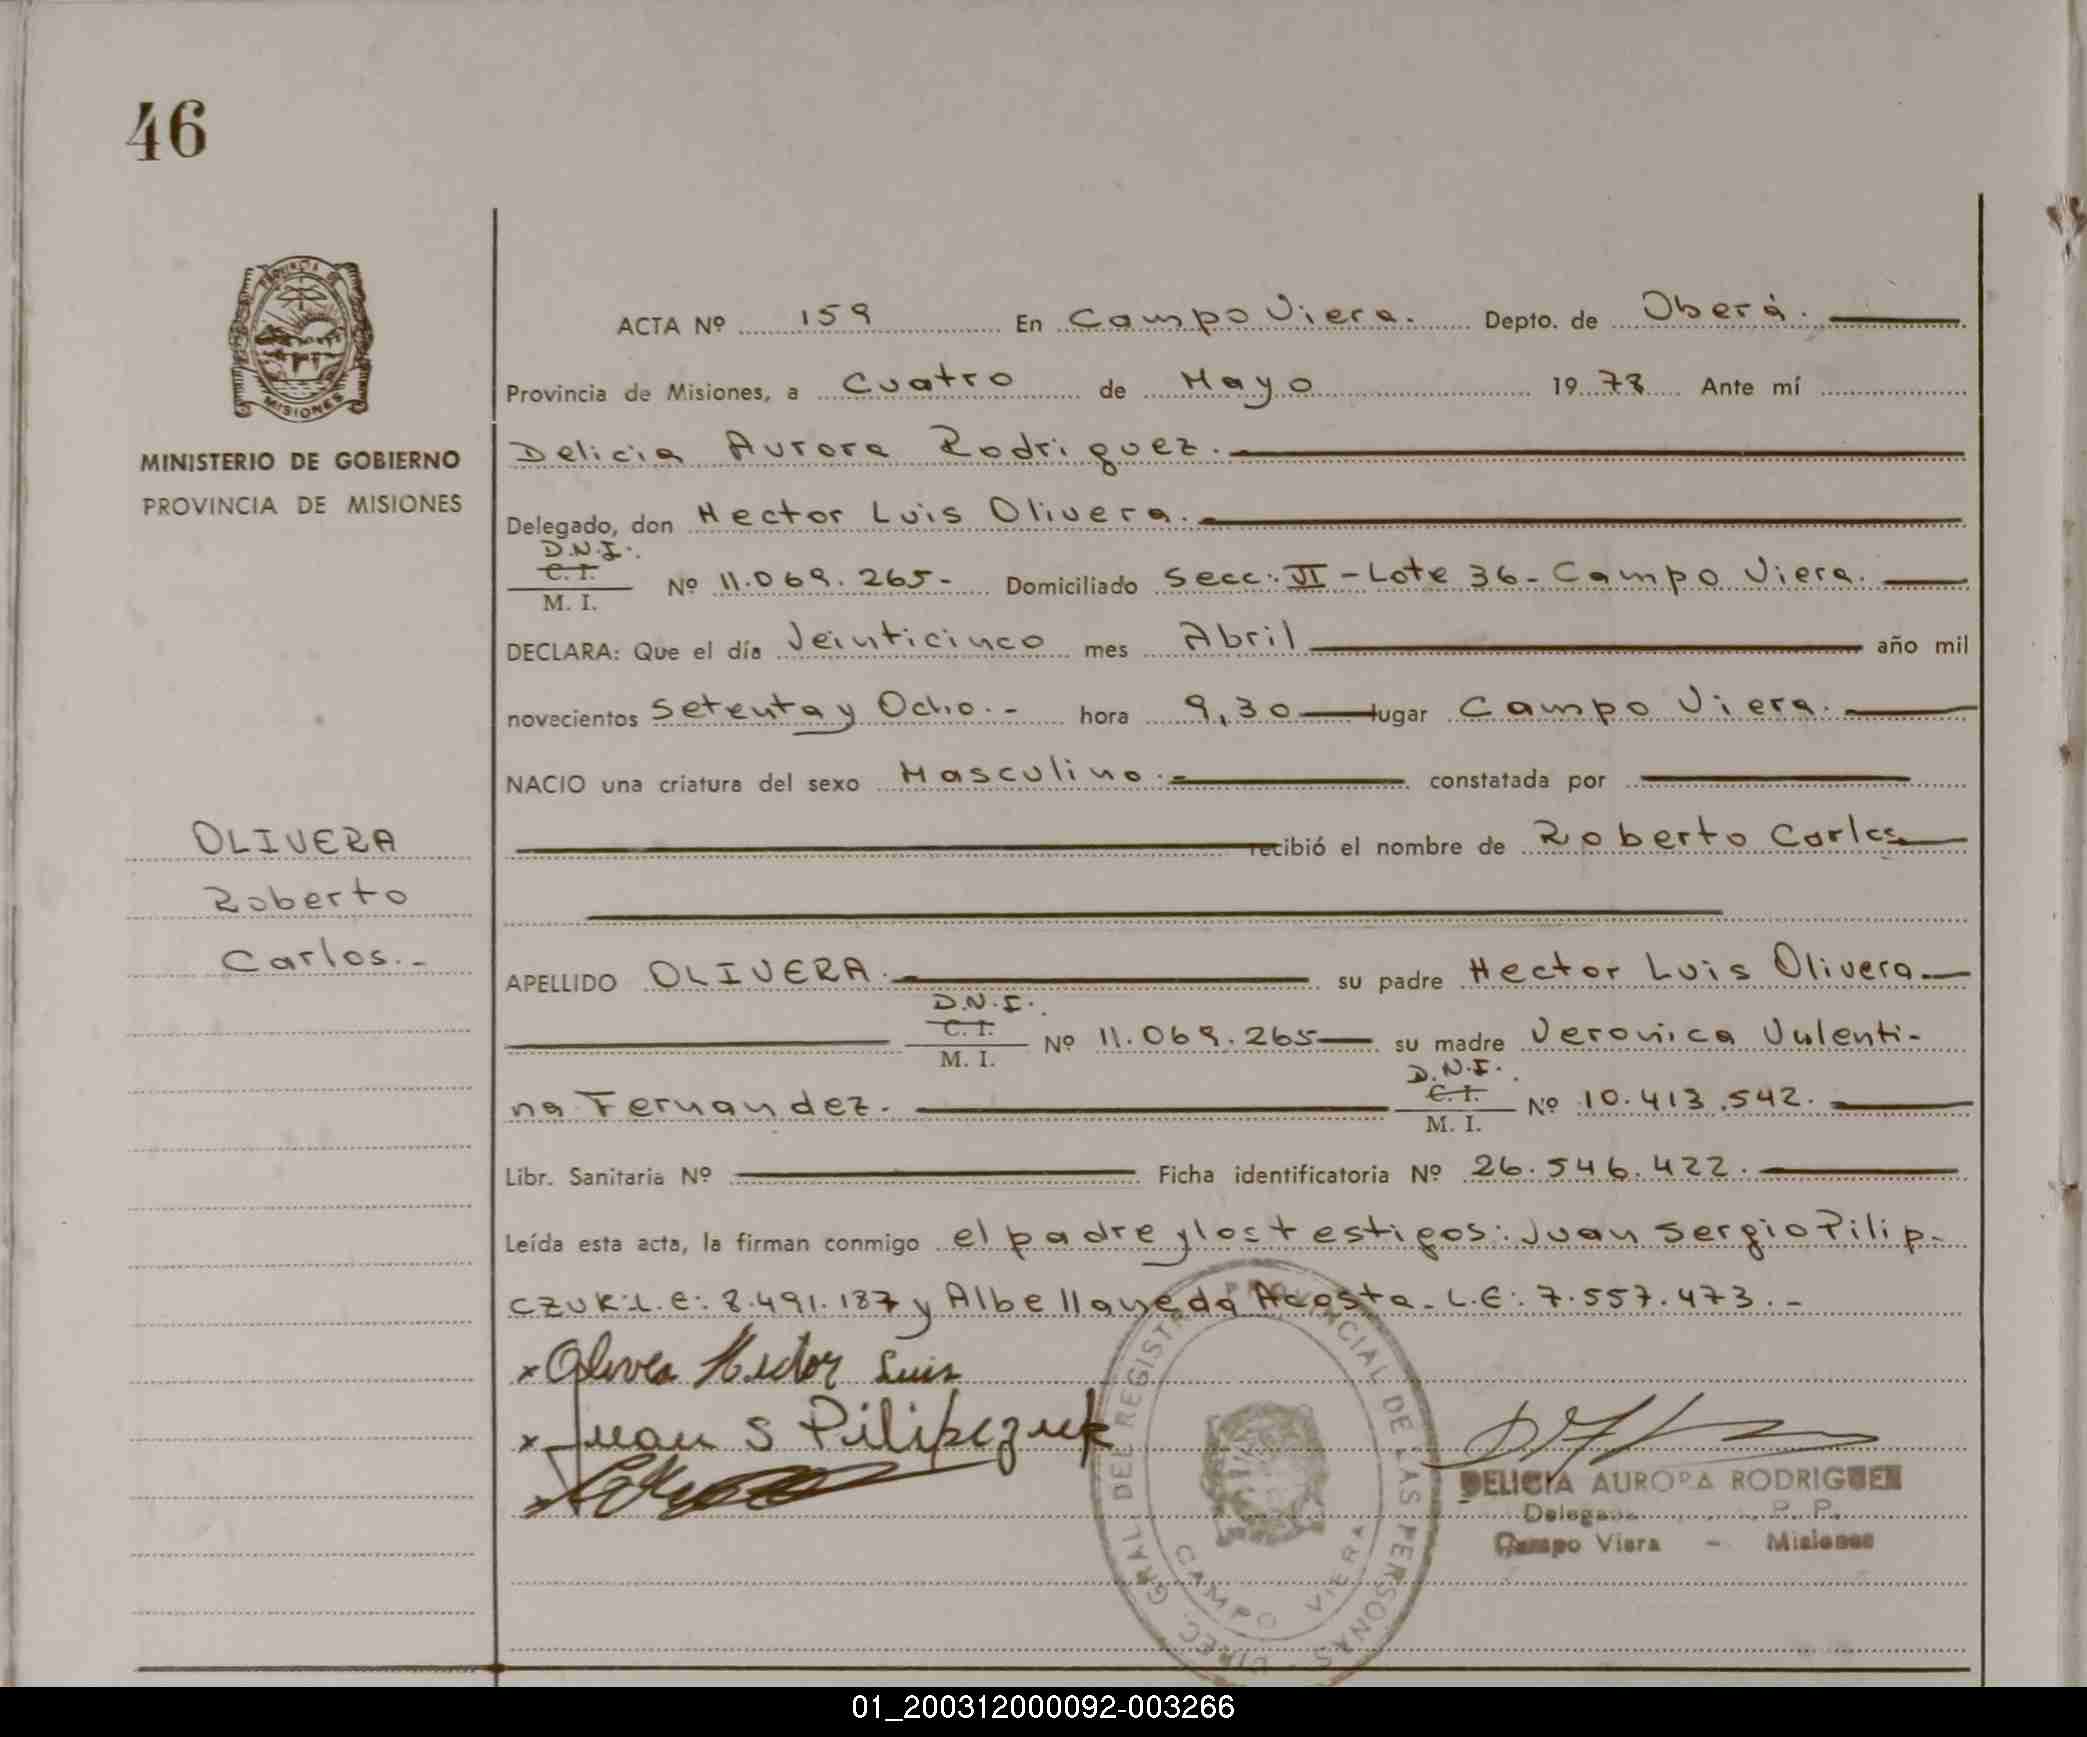 46
PROVINCIA DE
MISIONES
MINISTERIO DE GOBIERNO
PROVINCIA DE MISIONES
OLIVERA
Roberto
Carlos.-
ACTA Nº 159 En Campo Viera. Depto. de Oberá.
Provincia de Misiones, a Cuatro de Mayo 1978 Ante mí
Delicia Aurora Rodriguez.
Delegado, don Hector Luis Olivera.
D.N.I.
C. I.
M. I. Nº 11.069.265- Domiciliado Secc: VI - Lote 36 - Campo Viera.
DECLARA: Que el día Veinticinco mes Abril año mil
novecientos Setenta y Ocho.- hora 9,30 lugar Campo Viera.
NACIO una criatura del sexo Masculino.- constatada por
recibió el nombre de Roberto Carlos
APELLIDO OLIVERA. su padre Hector Luis Olivera
D.N.I.
C. I.
M. I. Nº 11.069.265 su madre Veronica Valenti-
na Fernandez. D.N.I.
C. I.
M. I. Nº 10.413.542.
Libr. Sanitaria Nº Ficha identificatoria Nº 26.546.422.
Leída esta acta, la firman conmigo el padre y los testigos: Juan Sergio Pilip-
czuk: L.E: 8.491.187 y Albellaneda Acosta. L.E: 7.557.473.-
x Olivera Hector Luis
x Juan S Pilipczuk
DIREC. GRAL. DEL REGISTRO PROVINCIAL DE LAS PERSONAS
CAMPO VIERA
DELICIA AURORA RODRIGUEZ
R. P. P.
Campo Viera - Misiones
01_200312000092-003266